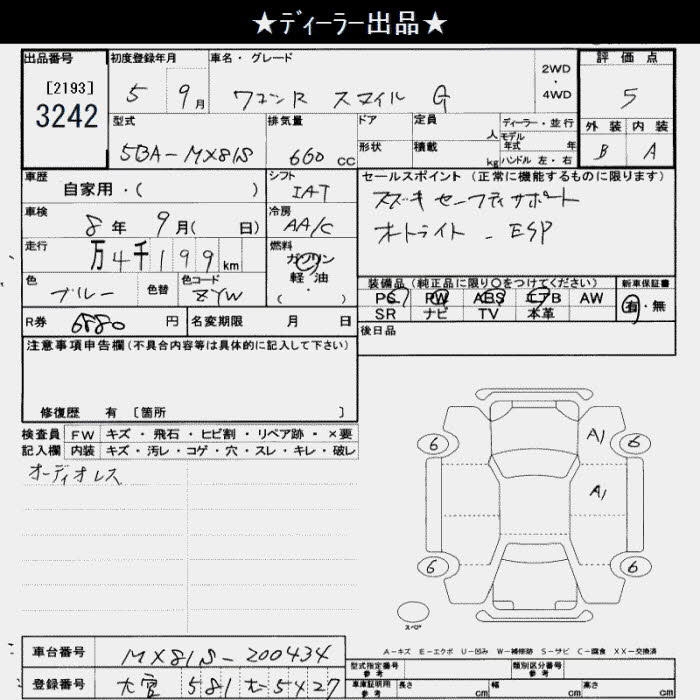 ★ディーラー出品★
出品番号 初度登録年月 車名・グレード 2WD・4WD 評価点
[2193]
3242 5 9月 ワゴンR スマイル G 5
型式 排気量 ドア 定員 人 ディーラー・並行 外装 内装
5BA-MX81S 660cc 形状 積載 kg モデル年式 年 ハンドル 左・右 B A
車歴 自家用・( ) シフト IAT セールスポイント(正常に機能するものに限ります)
車検 8年 9月( 日) 冷房 AA/C スズキ セーフティサポート
オートライト - ESP
走行 万4千199km 燃料 ガソリン 軽・油 ( )
色 ブルー 色替 色コード ZYW
装備品(純正品に限り○をつけてください) 新車保証書
PS PW ABS エアB AW 有・無
SR ナビ TV 本革
R券 6880円 名変期限 月 日 後日品
注意事項申告欄(不具合内容等は具体的に記入して下さい)
修復歴 有 [箇所 ]
検査員 FW キズ・飛石・ヒビ割・リペア跡・×要
記入欄 内装 キズ・汚レ・コゲ・穴・スレ・キレ・破レ
オーディオレス
6 A1 6
A1
6 6
スペア
A-キズ E-エクボ U-凹み W-補修跡 S-サビ C-腐食 XX-交換済
車台番号 MX81S-200434
型式指定番号 参考 類別区分番号 参考
登録番号 581 5427
車庫証明用 参考 長さ cm 幅 cm 高さ cm